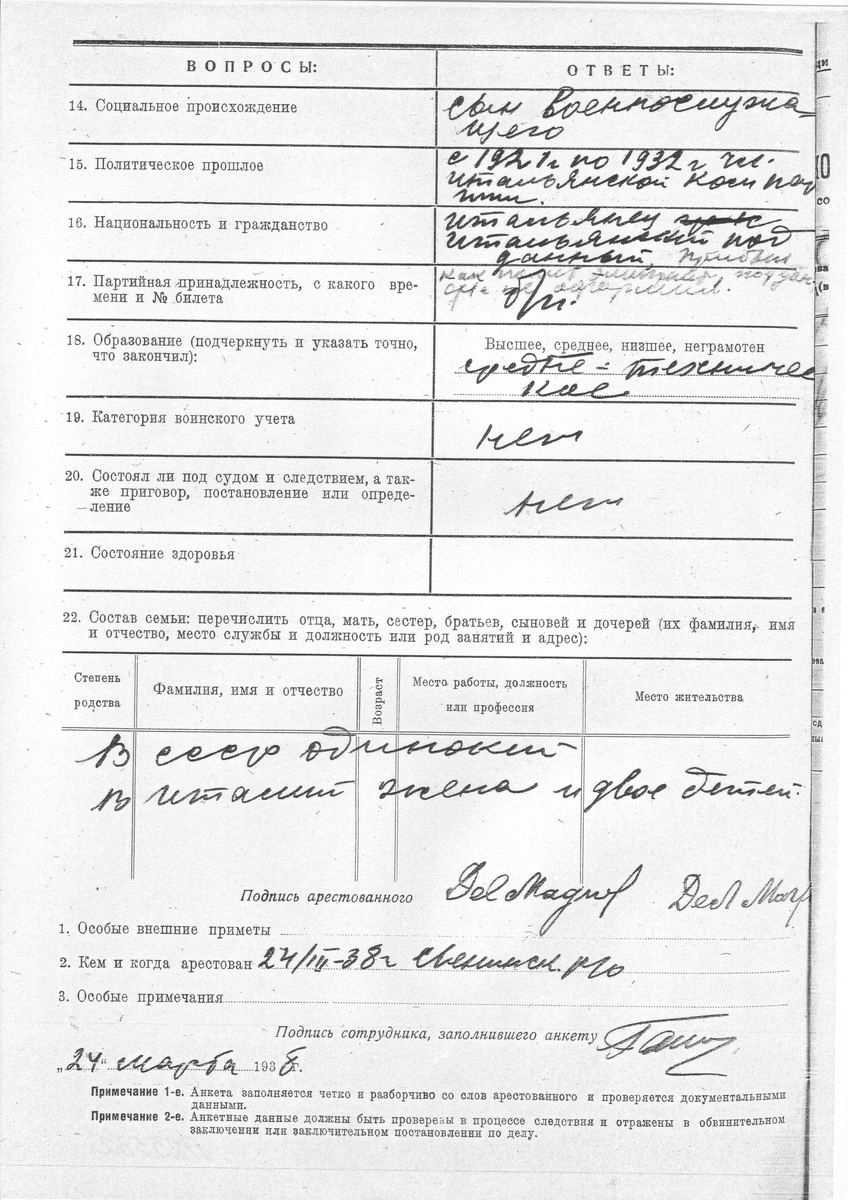 ВОПРОСЫ:
ОТВЕТЫ:
14. Социальное происхождение
сын военнослужа-
щего
15. Политическое прошлое
с 1921 г по 1932 г чл.
итальянской ком пар
тии.
16. Национальность и гражданство
итальянец
итальянский под
данный,
17. Партийная принадлежность, с какого вре-
мени и № билета
как полит
б/п.
18. Образование (подчеркнуть и указать точно,
что закончил):
Высшее, среднее, низшее, неграмотен
средне-техничес
кое
19. Категория воинского учета
нет
20. Состоял ли под судом и следствием, а так-
же приговор, постановление или опреде-
ление
нет
21. Состояние здоровья
22. Состав семьи: перечислить отца, мать, сестер, братьев, сыновей и дочерей (их фамилия, имя
и отчество, место службы и должность или род занятий и адрес):
Степень
родства
Фамилия, имя и отчество
Возраст
Место работы, должность
или профессия
Место жительства
В ссср одинокий
В италии жена и двое детей.
Подпись арестованного
1. Особые внешние приметы
2. Кем и когда арестован 24/III-38 г
3. Особые примечания
Подпись сотрудника, заполнившего анкету
„24“ марта 1938 г.
Примечание 1-е. Анкета заполняется четко и разборчиво со слов арестованного и проверяется документальными
данными.
Примечание 2-е. Анкетные данные должны быть проверены в процессе следствия и отражены в обвинительном
заключении или заключительном постановлении по делу.